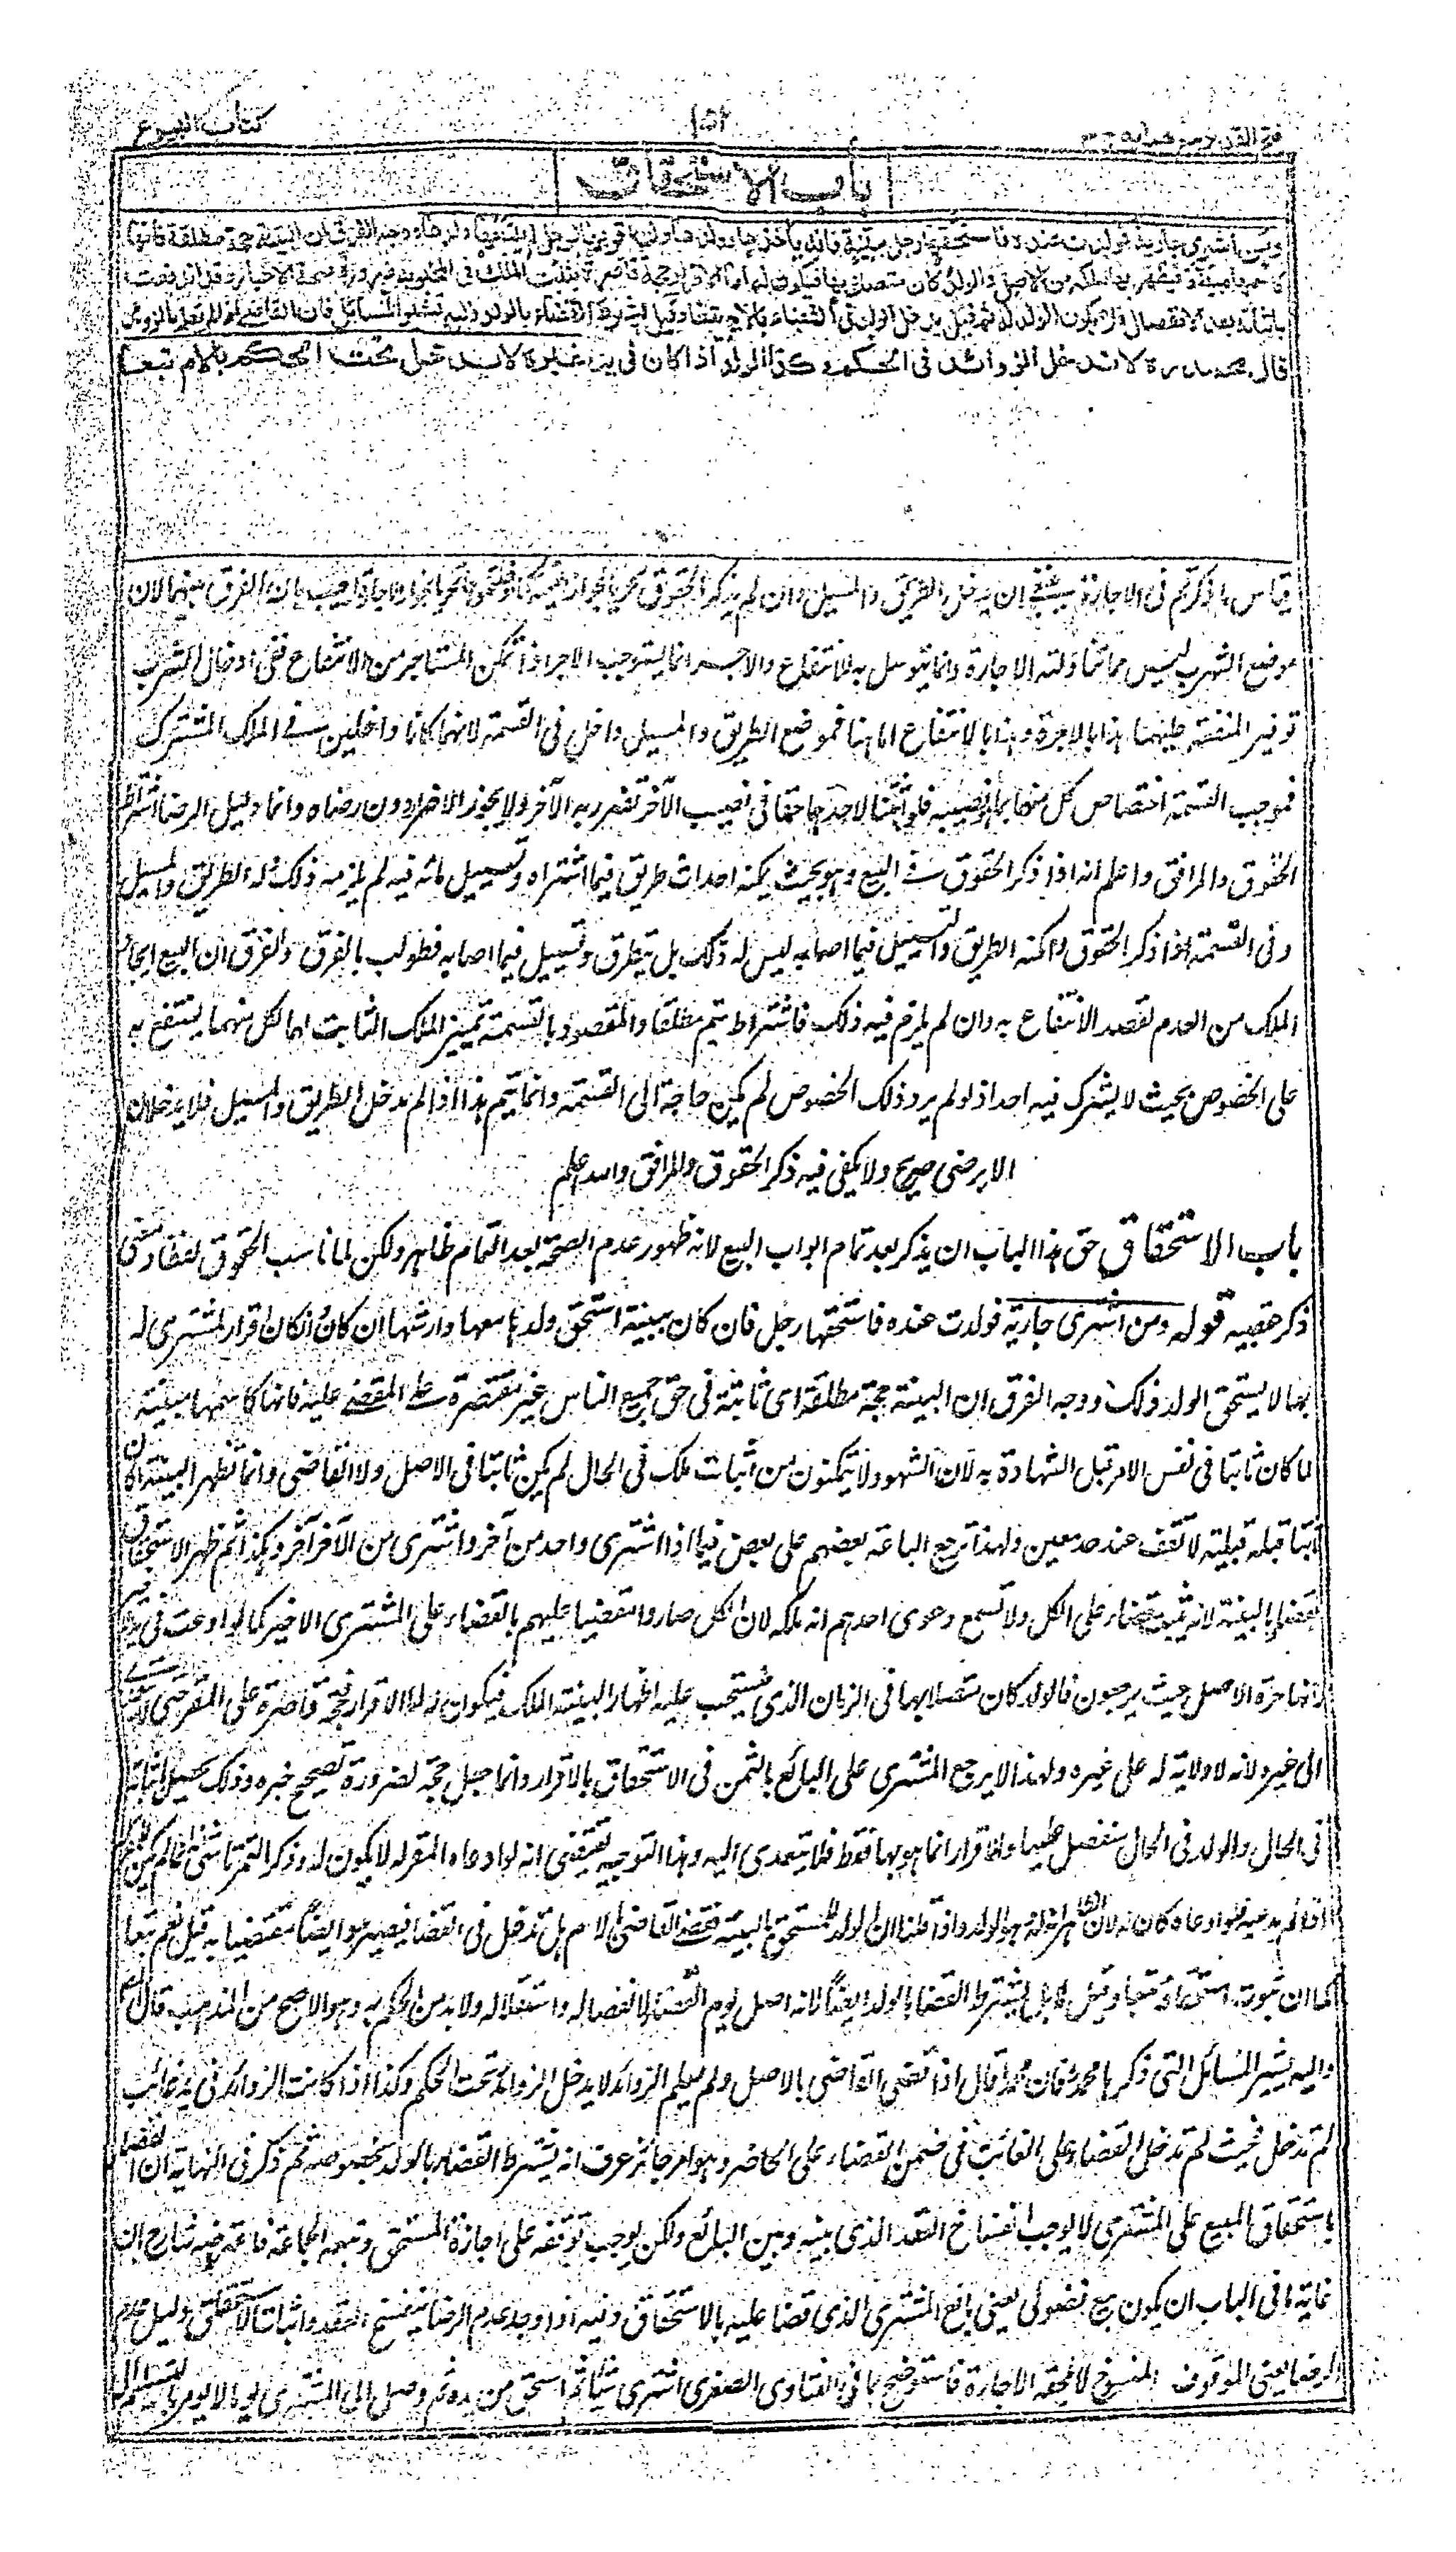 كتاب البيوع
باب الاستحقاق
ومن اشترى جارية فولدت عنده فاستحقها رجل ببينة فانه يأخذها وولدها وان اقر بها لرجل لم يتبعها ولدها ووجه الفرق ان البينة حجة مطلقة فانها
كاسمها مبينة فيظهر بها ملكه من الاصل والولد كان متصلا بها فيكون له اما الاقرار حجة قاصرة يثبت الملك في المخبر به ضرورة صحة الاخبار وقد اندفعت
باثباته بعد الانفصال فلا يكون الولد له ثم قيل يدخل الولد في القضاء بالام تبعا وقيل يشترط القضاء بالولد واليه تشير المسائل فان القاضي اذا لم يعلم بالزوائد
قال محمد لا تدخل الزوائد في الحكم وكذا الولد اذا كان في يد غيره لا يدخل تحت الحكم بالام تبعا
قياس ما ذكرتم في الاجارة ان يدخل الطريق والمسيل وان لم يذكر الحقوق بان الفرق بينهما لان
موضع الشرب ليس مما تناولته الاجارة وانما يتوسل به للانتفاع والاجر انما يستوجب الاجر اذا تمكن المستاجر من الانتفاع ففي ادخال الشرب
توفير المنفعة عليهما هذا بالاجرة وهذا بالانتفاع اما هنا فموضع الطريق والمسيل داخل في القسمة لانهما كانا داخلين في الملك المشترك
فموجب القسمة اختصاص كل منهما بنصيبه فلو اثبتنا لاحدهما حقا في نصيب الآخر تضرر به الآخر ولا يجوز الاضرار دون رضاه وانما دليل الرضا اشتراط
الحقوق والمرافق واعلم انه اذا ذكر الحقوق في البيع وهو بحيث يمكنه احداث طريق فيما اشتراه وتسييل مائه فيه لم يلزمه ذلك له الطريق والمسيل
وفى القسمة اذا ذكر الحقوق وامكنه الطريق والتسييل فيما اصابه ليس له ذلك بل يتطرق وتسييل فيما اصابه فطولب بالفرق والفرق ان البيع ايجاد
الملك من العدم لقصد الانتفاع به وان لم يلزم فيه ذلك فاشتراط يتم مطلقا والمقصود بالقسمة تمييز الملك الثابت لهما لكل منهما لينتفع به
على الخصوص بحيث لا يشرك فيه احد اذ لو لم يرد ذلك الخصوص لم يكن حاجة الى القسمة وانما يتم هذا اذا لم يدخل الطريق والمسيل فلا يدخلان
الا برضى صريح ولا يكفى فيه ذكر الحقوق والمرافق والله اعلم
باب الاستحقاق حق هذا الباب ان يذكر بعد تمام ابواب البيع لانه ظهور عدم الصحة بعد التمام ظاهر ولكن لما ناسب الحقوق لفظا ومعنى
ذكر عقيبه قوله ومن اشترى جارية فولدت عنده فاستحقها رجل فان كان ببينة استحق ولدها معها وارشها ان كان وان كان اقرار المشترى له
بها لا يستحق الولد ذلك ووجه الفرق ان البينة حجة مطلقة اى ثابتة في حق جميع الناس غير مقتصرة على المقضى عليه فانها كاسمها مبينة
لما كان ثابتا في نفس الامر قبل الشهادة به لان الشهود لا يتمكنون من اثبات ملك في الحال لم يكن ثابتا في الاصل ولا القاضى وانما تظهر البينة ما كان
ثابتا قبله قبلية لا تقف عند حد معين ولهذا ترجع الباعة بعضهم على بعض فيما اذا اشترى واحد من آخر واشترى من الآخر آخر وهكذا ثم ظهر الاستحقاق
بالبينة على الكل ولا تسمع دعوى احدهم انه ملكه لان الكل صاروا مقضيا عليهم بالقضاء على المشترى الاخير كما لو ادعت في يد
انها حرة الاصل حيث يرجعون فالولد كان متصلا بها في الزمان الذى يستحب عليه اظهار البينة الملك فيكون له اما الاقرار فحجة قاصرة على المقر حتى
الى غيره لانه لا ولاية له على غيره ولهذا لا يرجع المشترى على البائع بالثمن في الاستحقاق بالاقرار وانما جعل حجة لضرورة تصحيح خبره وذلك يحصل باثباته
في الحال والولد في الحال منفصل عنها والاقرار انما هو بها فقط فلا يتعدى اليه وهذا التوجيه يقتضى انه لو ادعاه المقر له لا يكون له وذكر التمرتاشى
اذا لم يدعيه فلو ادعاه كان له لان الظاهر انه له واذا قلنا ان الولد المستحق بالبينة فقضى القاضى بالام هل تدخل في القضا فيصير هو ايضا مقضيا به قيل نعم تبعا
كما ان ثبوت استحقاقه تبعا وقيل لا بل يشترط القضا بالولد ايضا لانه اصل يوم القضا لانفصاله واستقلاله ولا بد من الحكم به وهو الاصح من المذهب قال
واليه يشير المسائل التى ذكرها محمد فان محمدا قال اذا قضى القاضى بالاصل ولم يعلم الزوائد لا يدخل الزوائد تحت الحكم وكذا اذا كانت الزوائد في يد غائب
لم تدخل فحيث لم تدخل القضاء على الغائب في ضمن القضاء على الحاضر وهو امر جائز عرف انه يشترط القضاء بالولد بخصوصه ثم ذكر في النهاية ان القضا
باستحقاق المبيع على المشترى لا يوجب انفساخ العقد الذى بينه وبين البائع ولكن يوجب توقفه على اجازة المستحق وتبعه الجماعة
غاية ما في الباب ان يكون بيع فضولى يعنى بائع المشترى الذى قضا عليه بالاستحقاق وفيه اذا وجد عدم الرضا ينفسخ العقد واثبات الاستحقاق دليل عدم
الرضا يعنى الموقوف المفسوخ لا تلحقه الاجازة فاستوضح بما في الفتاوى الصغرى اشترى شيئا ثم استحق من يده ثم وصل الى المشترى يوما لا يومر